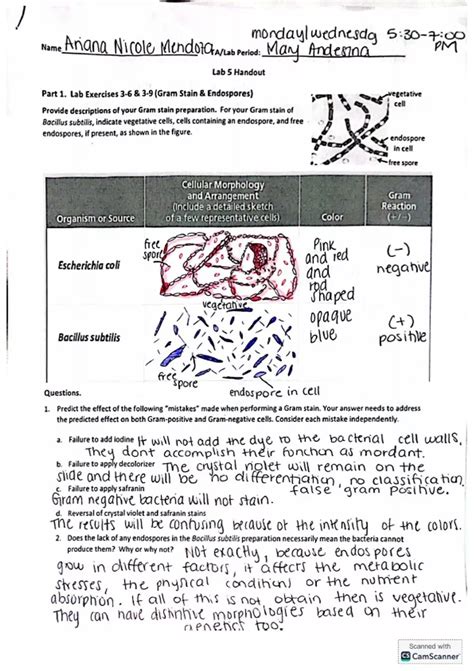 monday/wednesday 5:30-7:00 PM
Name Ariana Nicole Mendoza TA/Lab Period: May Andesina
Lab 5 Handout
Part 1. Lab Exercises 3-6 & 3-9 (Gram Stain & Endospores)
Provide descriptions of your Gram stain preparation. For your Gram stain of
Bacillus subtilis, indicate vegetative cells, cells containing an endospore, and free
endospores, if present, as shown in the figure.
vegetative
cell
endospore
in cell
free spore
Organism or Source
Cellular Morphology
and Arrangement
(Include a detailed sketch
of a few representative cells)
Color
Gram
Reaction
(+/−)
Escherichia coli
free
spore
vegetative
Pink
and red
and
rod
shaped
(-)
negative
Bacillus subtilis
free spore
endospore in cell
opaque
blue
(+)
positive
Questions.
1. Predict the effect of the following "mistakes" made when performing a Gram stain. Your answer needs to address
the predicted effect on both Gram-positive and Gram-negative cells. Consider each mistake independently.
a. Failure to add iodine It will not add the dye to the bacterial cell walls,
They dont accomplish their function as mordant.
b. Failure to apply decolorizer The crystal violet will remain on the
slide and there will be no differentiation, no classification,
false gram positive.
c. Failure to apply safranin
Gram negative bacteria will not stain.
d. Reversal of crystal violet and safranin stains
The results will be confusing because of the intensity of the colors.
2. Does the lack of any endospores in the Bacillus subtilis preparation necessarily mean the bacteria cannot
produce them? Why or why not? Not exactly, because endospores
grow in different factors, it affects the metabolic
stresses, the physical conditions or the nutrient
absorption. If all of this is not obtain then is vegetative.
They can have distintive morphologies based on their
genetics too.
Scanned with
CS CamScanner